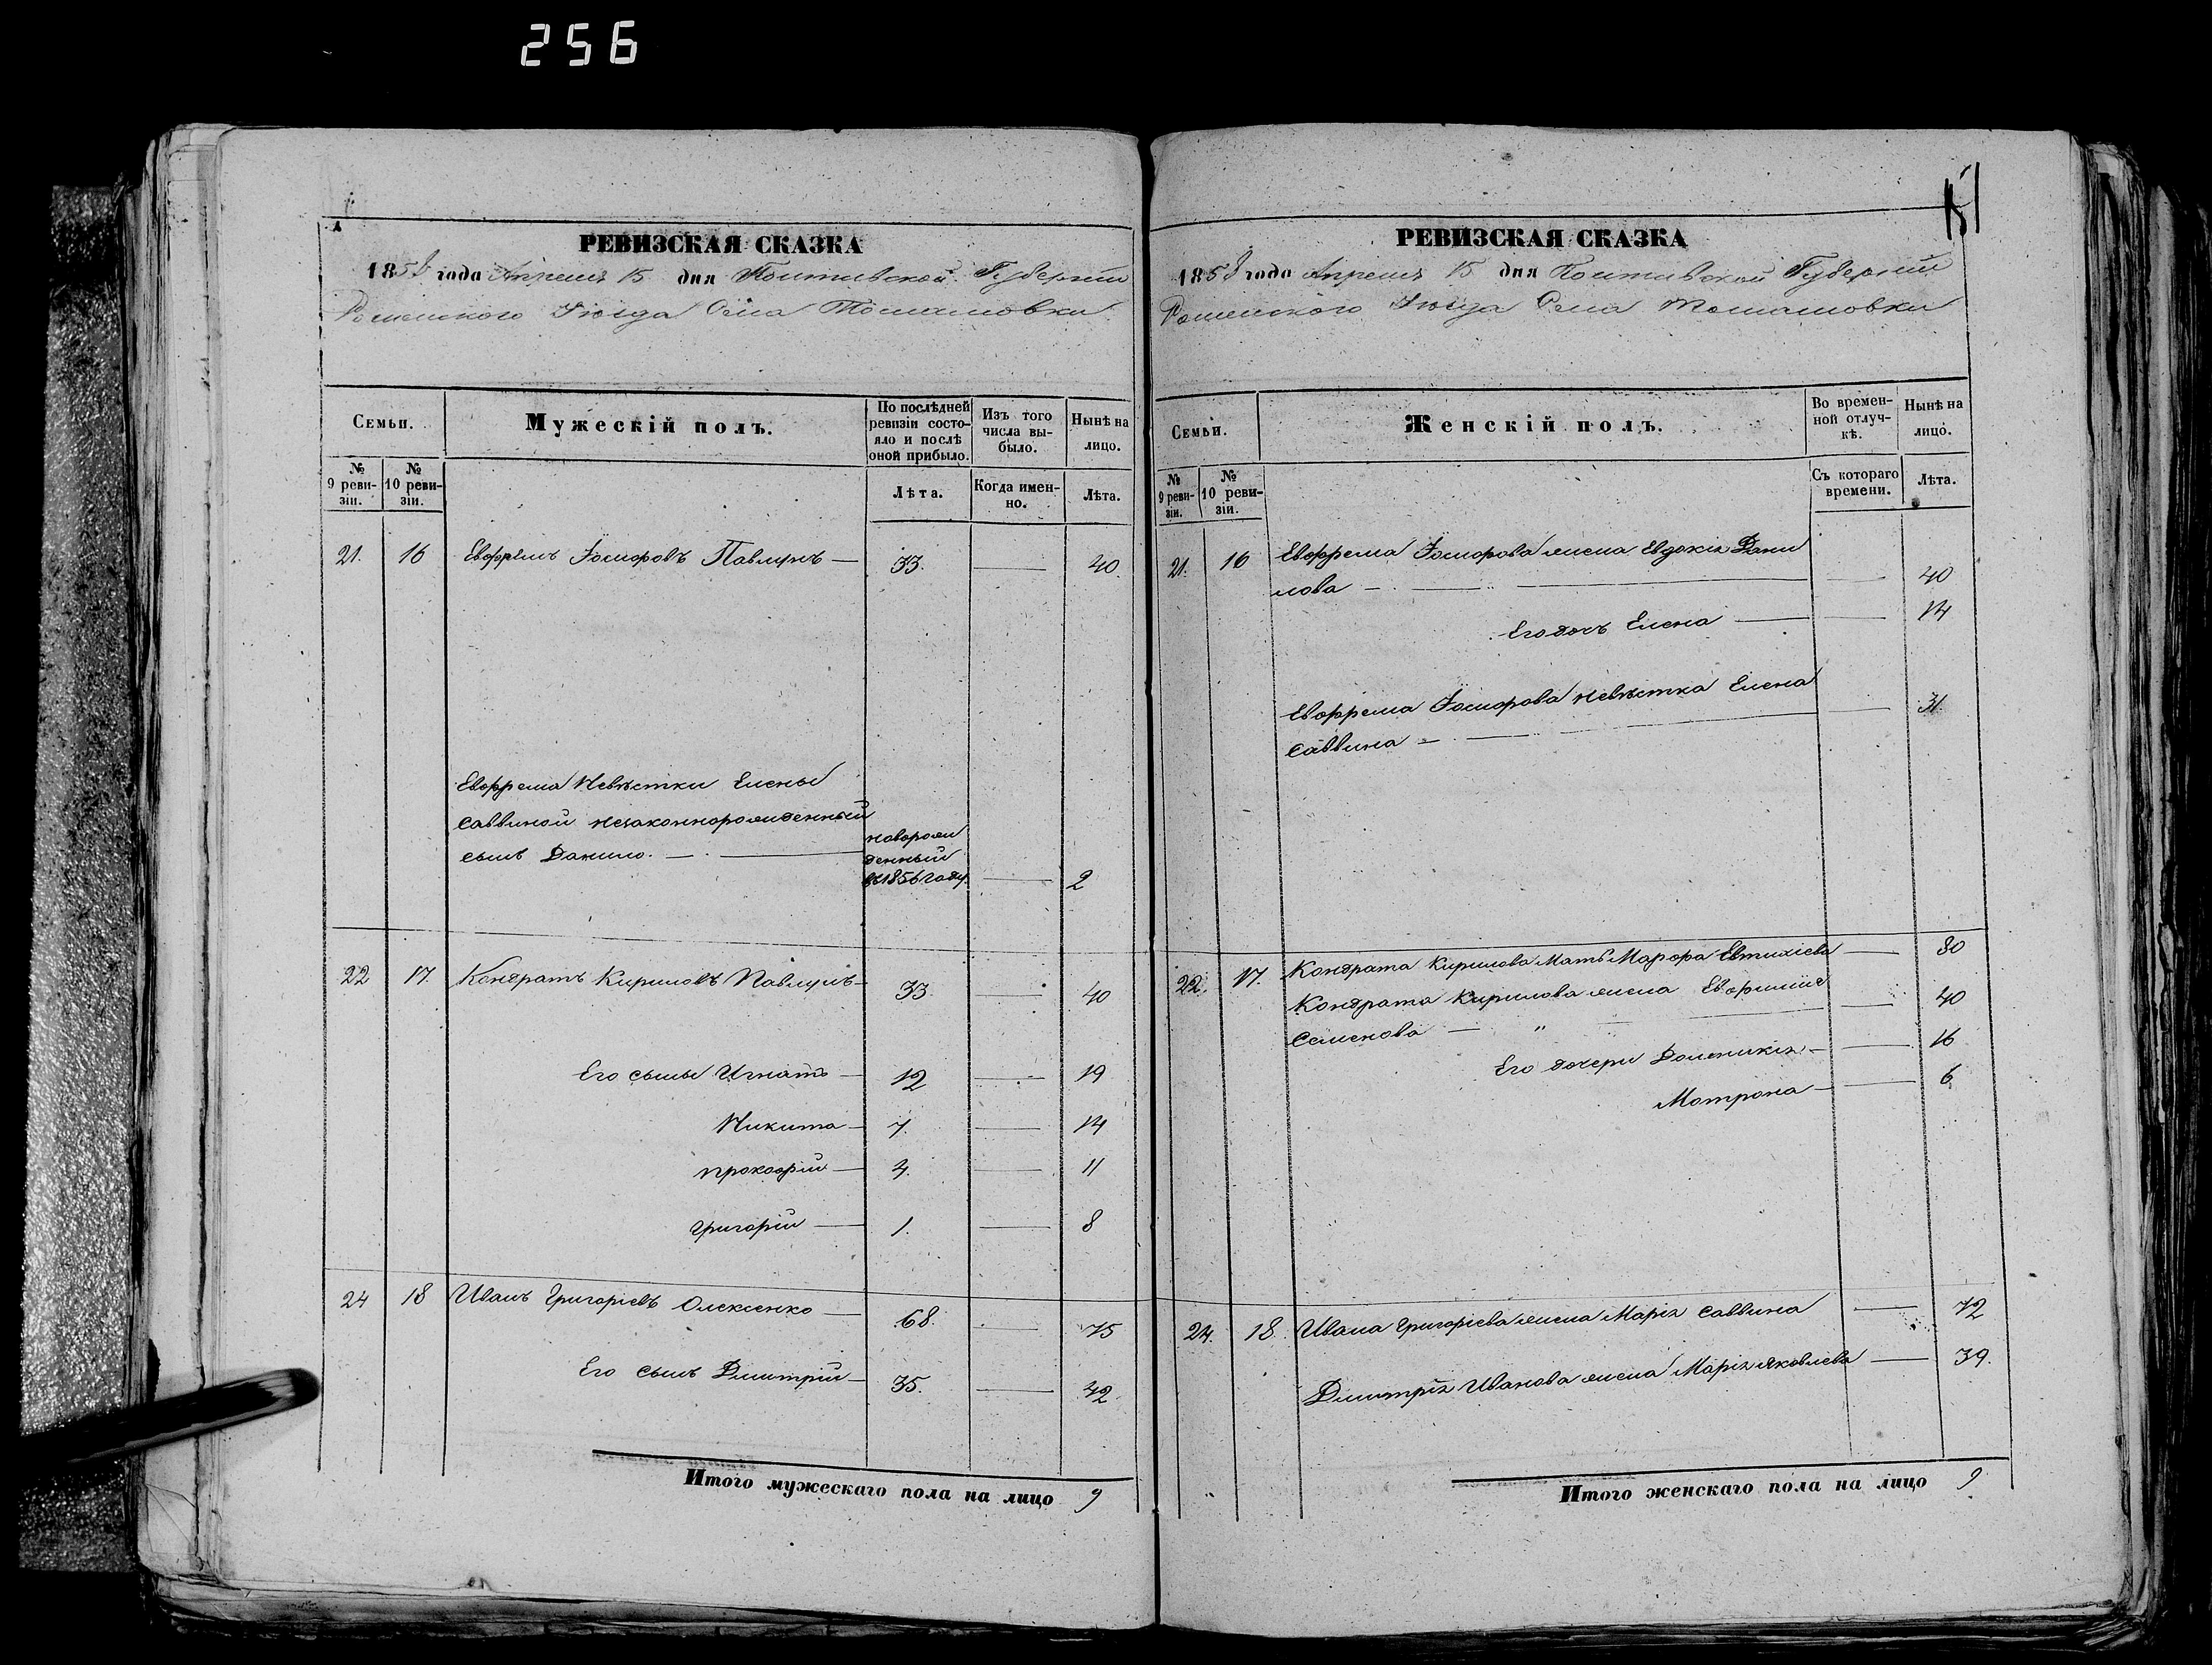 256
РЕВИЗСКАЯ СКАЗКА
1858 года Апреля 15 дня Полтавской Губерніи
Роменского Уѣзда Села Томашовки
Семьи.
Мужескій полъ.
По послѣдней ревизіи состояло и послѣ оной прибыло.
Изъ того числа выбыло.
Нынѣ на лицо.
№ 9 ревизіи.
№ 10 ревизіи.
Лѣта.
Когда именно.
Лѣта.
21. 16 Евфремъ Федоровъ Павлунъ — 33. — 40.
Евфрема Невѣстки Елены
Саввиной незаконнорожденный
сынъ Данило. — новорожденный въ 1856 году. — 2
22 17. Кондратъ Кириловъ Павлунъ — 33. — 40
Его сыны Игнатъ — 12 — 19
Никита — 7. — 14
прокофій — 4. — 11
григорій — 1. — 8
24 18 Иванъ Григорьевъ Олексенко — 68. — 75
Его сынъ Дмитрій — 35. — 42.
Итого мужескаго пола на лицо 9
РЕВИЗСКАЯ СКАЗКА
1858 года Апреля 15 дня Полтавской Губерніи
Роменского Уѣзда Села Томашовки
Семьи.
Женскій полъ.
Во временной отлучкѣ.
Нынѣ на лицо.
№ 9 ревизіи.
№ 10 ревизіи.
Съ котораго времени.
Лѣта.
21. 16 Евфрема Федорова жена Евдокія Дани
лова — — 40
Его дочь Елена — — 14
Евфрема Федорова невѣстка Елена — 31.
Саввина —
22. 17. Кондрата Кирилова Мать Марфа Евтихіева — 80
Кондрата Кирилова жена Евфимія — 40
Семенова — "
Его дочери Доменикія — — 16
Мотрона — — 6
24. 18. Ивана Григорьева жена Марія Саввина — 72
Дмитрія Иванова жена Марія Яковлева — 39.
Итого женскаго пола на лицо 9